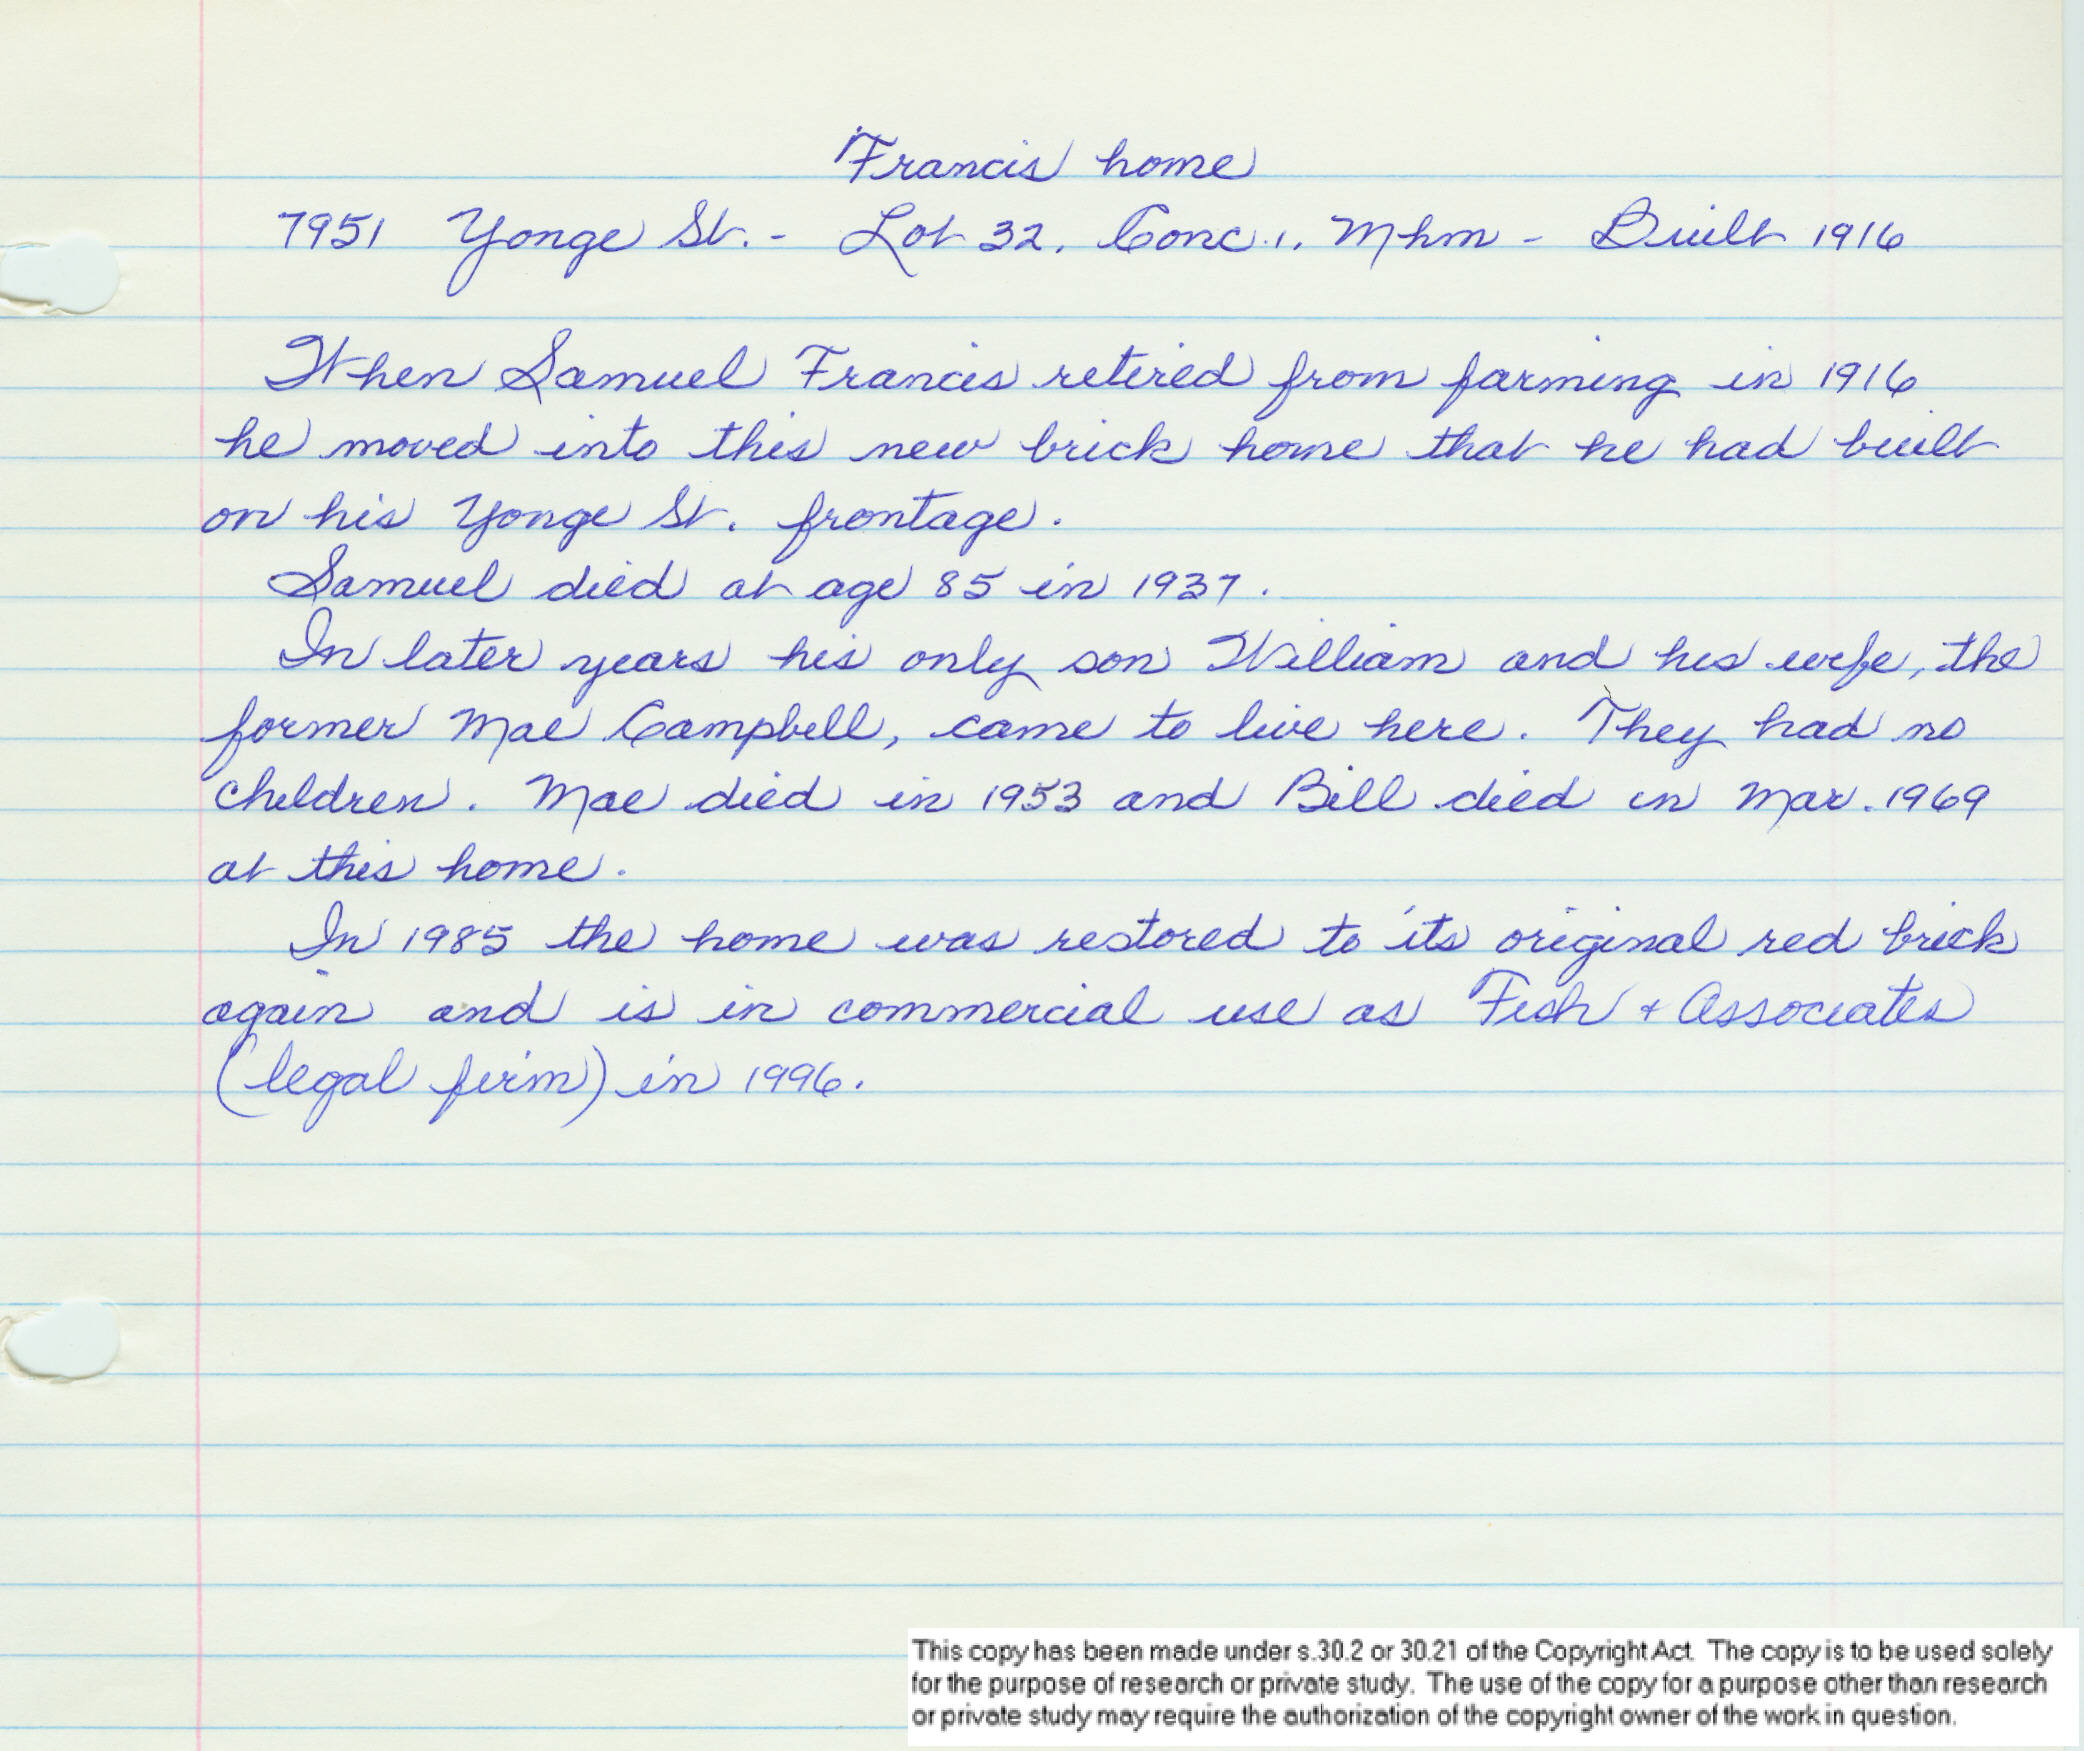 Francis home
7951 Yonge St. - Lot 32, Conc. 1, Mhm - Built 1916
When Samuel Francis retired from farming in 1916
he moved into this new brick home that he had built
on his Yonge St. frontage.
Samuel died at age 85 in 1937.
In later years his only son William and his wife, the
former Mae Campbell, came to live here. They had no
children. Mae died in 1953 and Bill died in Mar. 1969
at this home.
In 1985 the home was restored to its original red brick
again and is in commercial use as Fish & Associates
(legal firm) in 1996.
This copy has been made under s.30.2 or 30.21 of the Copyright Act. The copy is to be used solely
for the purpose of research or private study. The use of the copy for a purpose other than research
or private study may require the authorization of the copyright owner of the work in question.